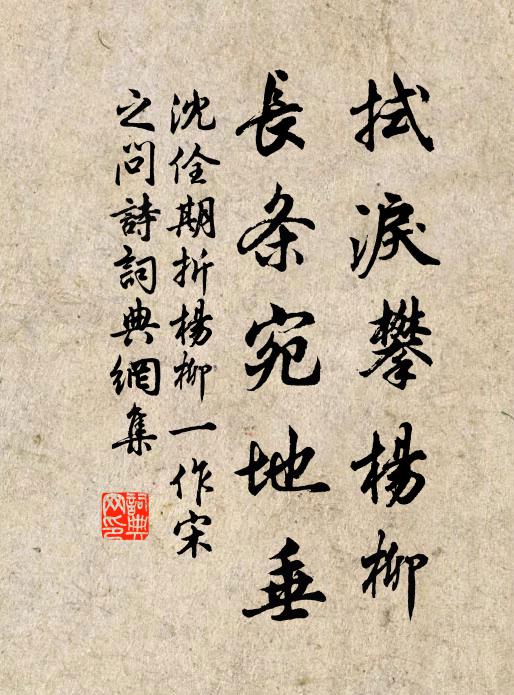 拭淚攀楊柳
長条宛地垂
沈佺期折楊柳一作宋
之問詩詞典網集
詞典网印